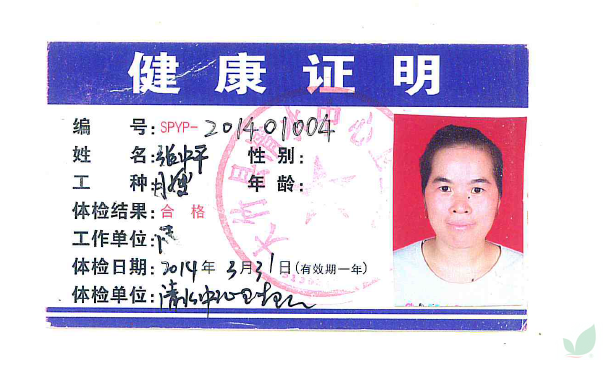 健康证明
编 号: SPYP-201401004
姓 名: 张中平
性 别:
工 种:
年 龄:
体检结果: 合格
工作单位:
体检日期: 2014年 3月31日(有效期一年)
体检单位: 清水中心卫生院
大竹县清水